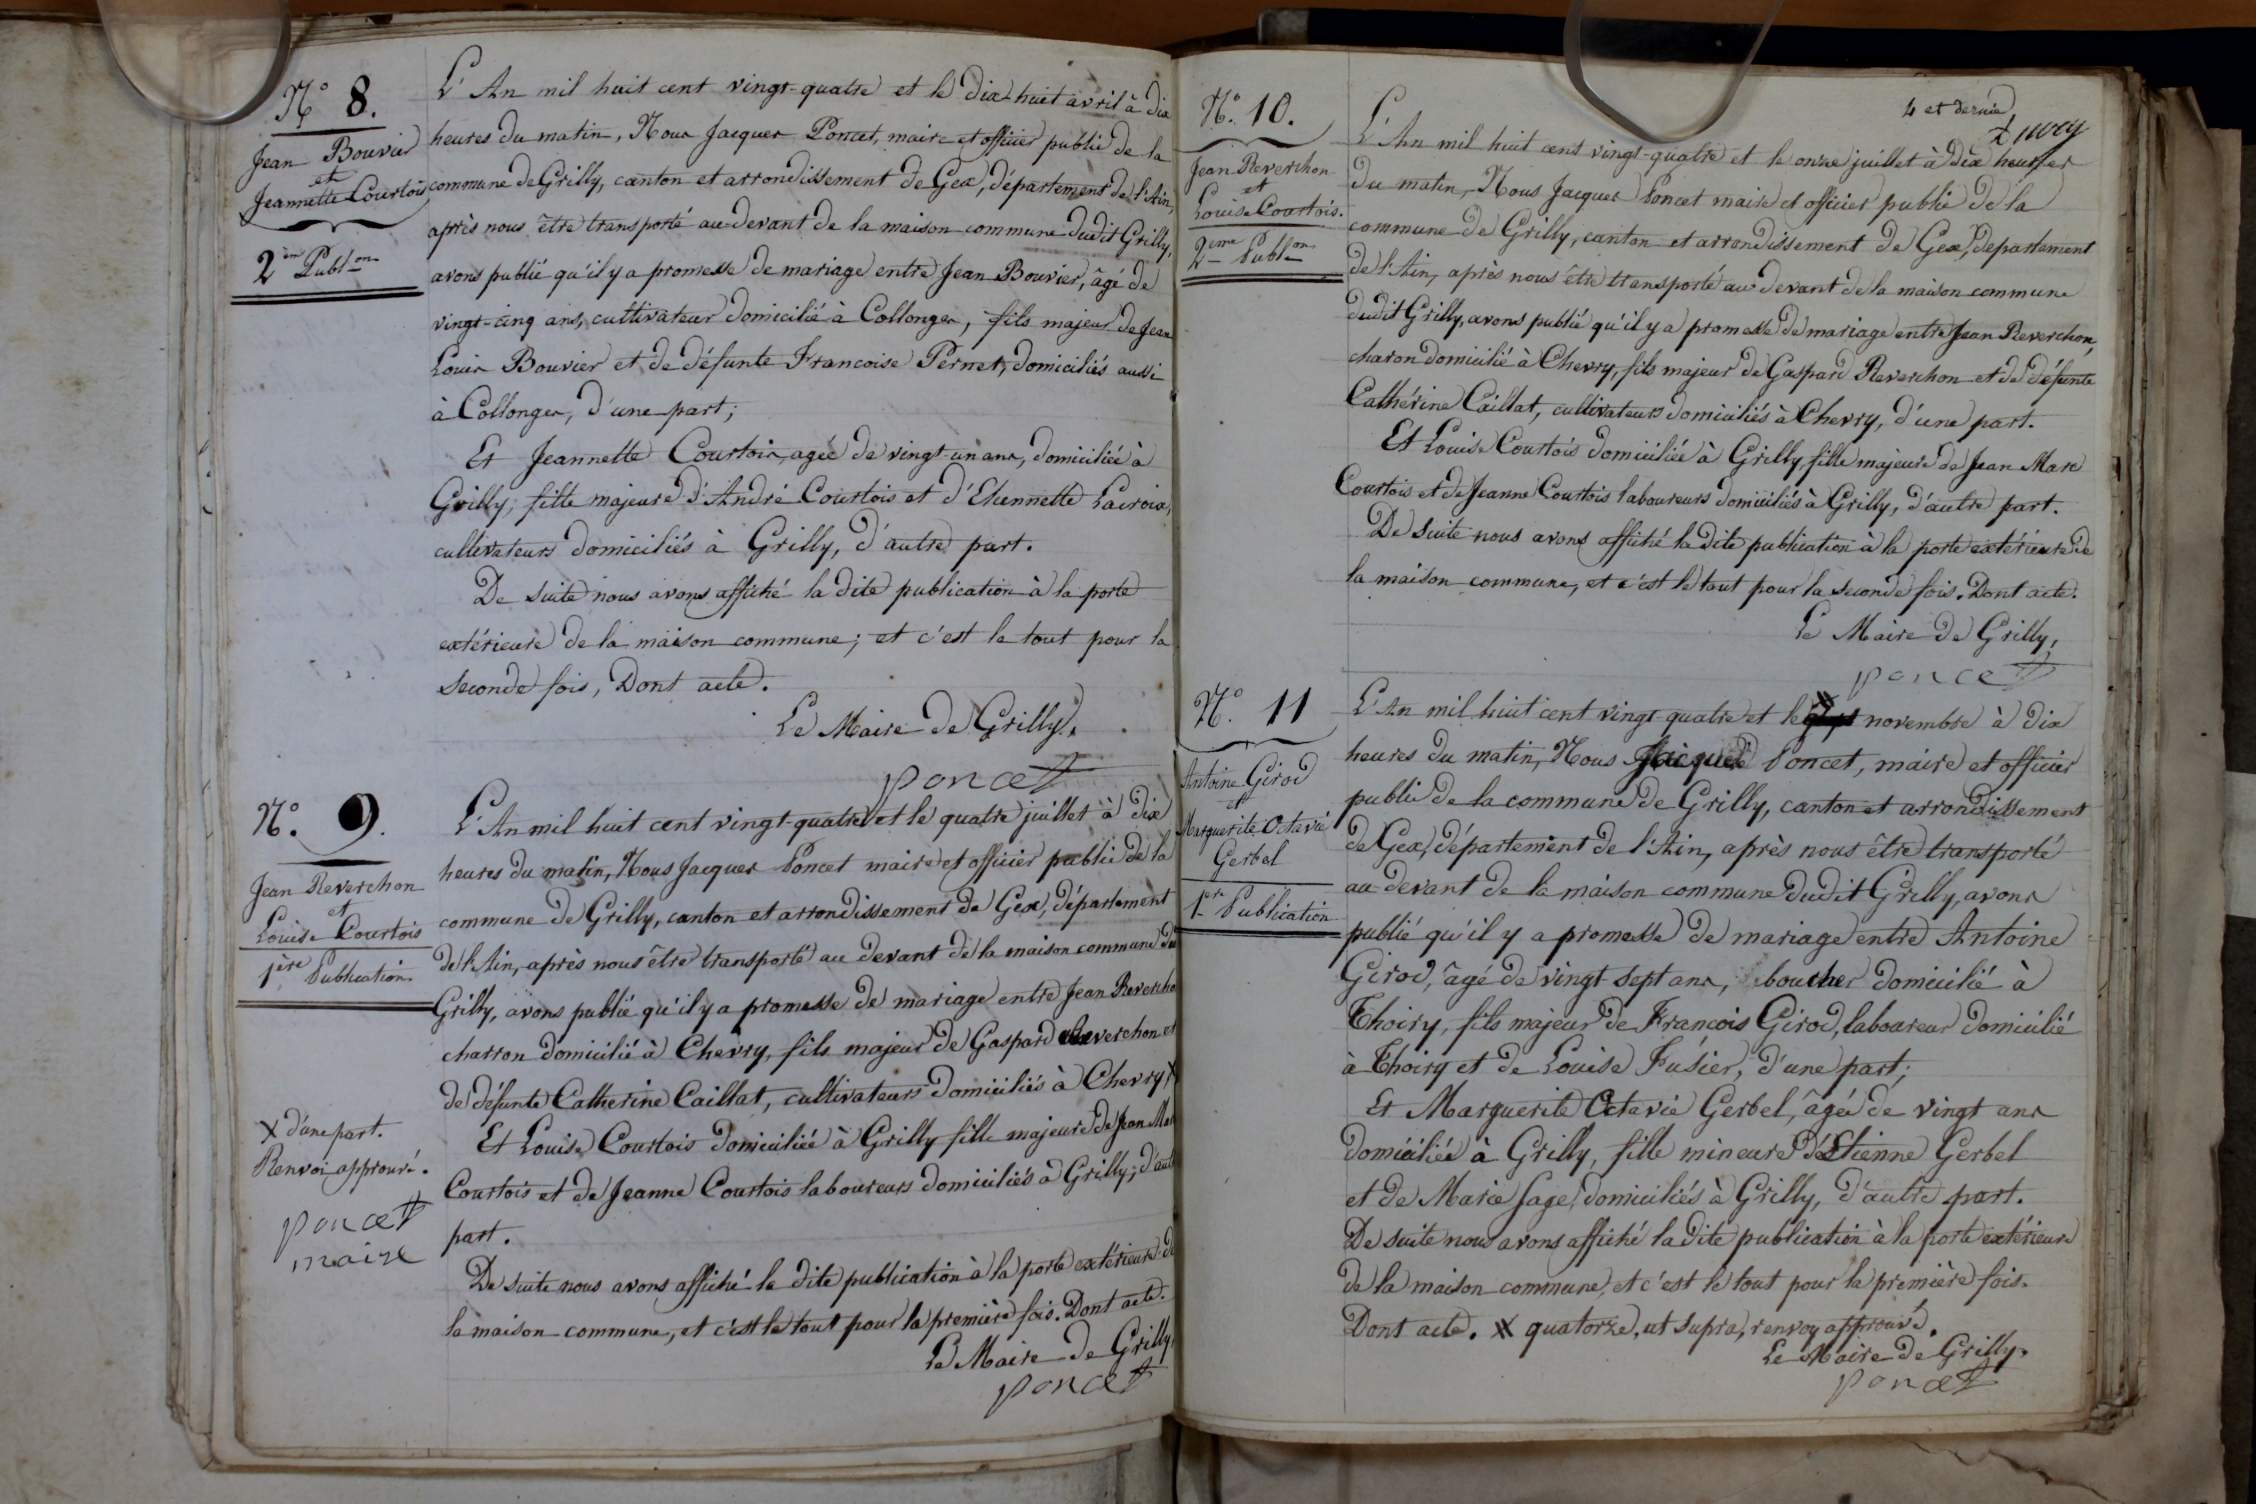 N.° 8.
Jean Bouvier
et
Jeannette Courtois
2ème Publ.on
L'An mil huit cent vingt-quatre et le dix-huit avril à dix
heures du matin, Nous Jacques Poncet, maire et officier public de la
commune de Grilly, canton et arrondissement de Gex, département de l'Ain,
après nous être transporté au-devant de la maison commune dudit Grilly,
avons publié qu'il y a promesse de mariage entre Jean Bouvier, âgé de
vingt-cinq ans, cultivateur domicilié à Collonges, fils majeur de Jean
Louis Bouvier et de défunte Francoise Pernet, domiciliés aussi
à Collonges, d'une part;
Et Jeannette Courtois, agée de vingt-un ans, domiciliée à
Grilly, fille majeure d'André Courtois et d'Etiennette Lacroix,
cultivateurs domiciliés à Grilly, d'autre part.
De suite nous avons affiché la dite publication à la porte
extérieure de la maison commune; et c'est le tout pour la
seconde fois, Dont acte.
Le Maire de Grilly.
Poncet
N.° 9.
Jean Reverchon
et
Louise Courtois
1ère Publication
L'An mil huit cent vingt-quatre et le quatre juillet à dix
heures du matin, Nous Jacques Poncet maire et officier public de la
commune de Grilly, canton et arrondissement de Gex, département
de l'Ain, après nous être transporté au devant de la maison commune du
Grilly, avons publié qu'il y a promesse de mariage entre Jean Reverchon
charron domicilié à Chevry, fils majeur de Gaspard Reverchon et
de défunte Catherine Caillat, cultivateurs domiciliés à Chevry X
Et Louise Courtois domiciliée à Grilly fille majeure de Jean Marc
Courtois et de Jeanne Courtois laboureurs domiciliés à Grilly; d'autre
part.
De suite nous avons affiché la dite publication à la porte extérieure de
la maison commune, et c'est le tout pour la première fois. Dont acte.
Le Maire de Grilly
Poncet
X d'une part.
Renvoi approuvé.
Poncet
maire
4 et dernier
N.° 10.
Jean Reverchon
et
Louise Courtois.
2ème Publ.on
L'An mil huit cent vingt-quatre et le onze juillet à dix heures
du matin, Nous Jacques Poncet maire et officier public de la
commune de Grilly, canton et arrondissement de Gex, département
de l'Ain, après nous être transporté au devant de la maison commune
dudit Grilly, avons publié qu'il y a promesse de mariage entre Jean Reverchon,
charon domicilié à Chevry, fils majeur de Gaspard Reverchon et de défunte
Cathérine Caillat, cultivateurs domiciliés à Chevry, d'une part.
Et Louise Courtois domiciliée à Grilly, fille majeure de Jean Marc
Courtois et de Jeanne Courtois laboureurs domiciliés à Grilly, d'autre part.
De suite nous avons affiché la dite publication à la porte extérieure de
la maison commune, et c'est le tout pour la seconde fois. Dont acte.
Le Maire de Grilly,
Poncet
N.° 11
Antoine Girod
et
Marguerite Octavie
Gerbel
1ère Publication
L'An mil huit cent vingt-quatre et le X novembre à dix
heures du matin, Nous Jacques Poncet, maire et officier
public de la commune de Grilly, canton et arrondissement
de Gex, département de l'Ain, après nous être transporté
au devant de la maison commune dudit Grilly, avons
publié qu'il y a promesse de mariage entre Antoine
Girod, âgé de vingt sept ans, boucher domicilié à
Thoiry, fils majeur de Francois Girod, laboureur domicilié
à Thoiry et de Louise Fusier, d'une part;
Et Marguerite Octavie Gerbel, âgée de vingt ans
domiciliée à Grilly, fille mineure d'Etienne Gerbel
et de Marie Sage, domiciliés à Grilly, d'autre part.
De suite nous avons affiché la dite publication à la porte extérieure
de la maison commune, et c'est le tout pour la première fois.
Dont acte. X quatorze, ut supra, renvoy approuvé.
Le Maire de Grilly.
Poncet